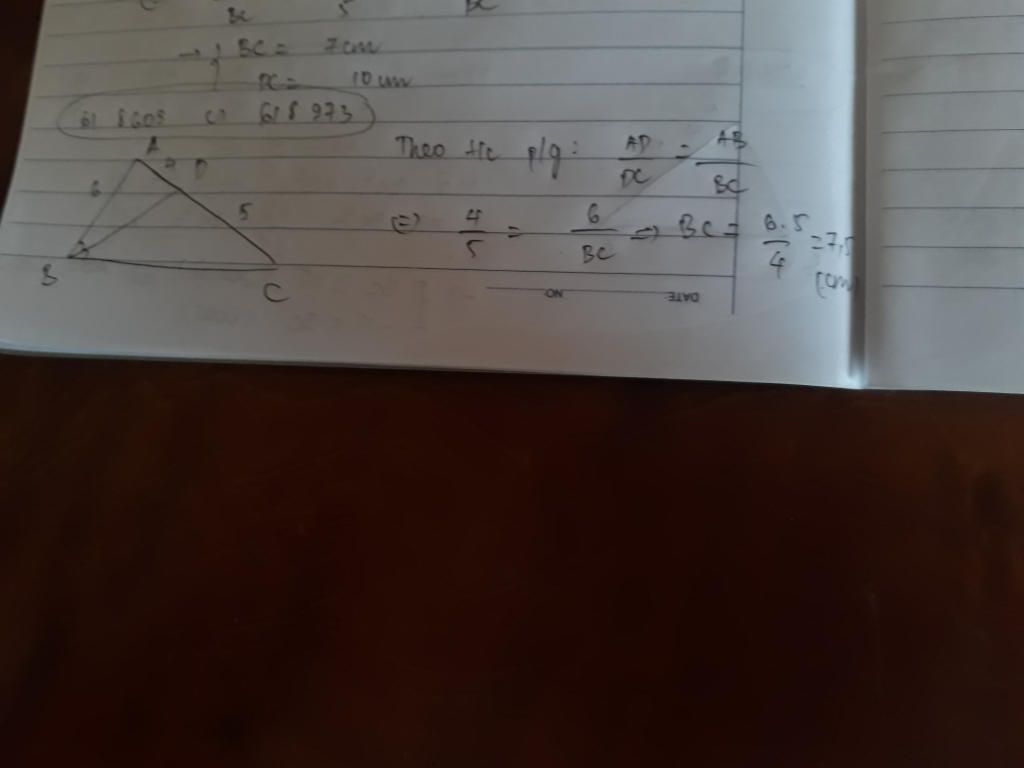 BC 5 BC
→ { BC = 7cm
DC = 10 cm
618973
A
D
6
5
B
C
Theo t/c p/g: AD/DC = AB/BC
(=) 4/5 = 6/BC => BC = 6.5/4 = 7,5 (cm)
NO. DATE: